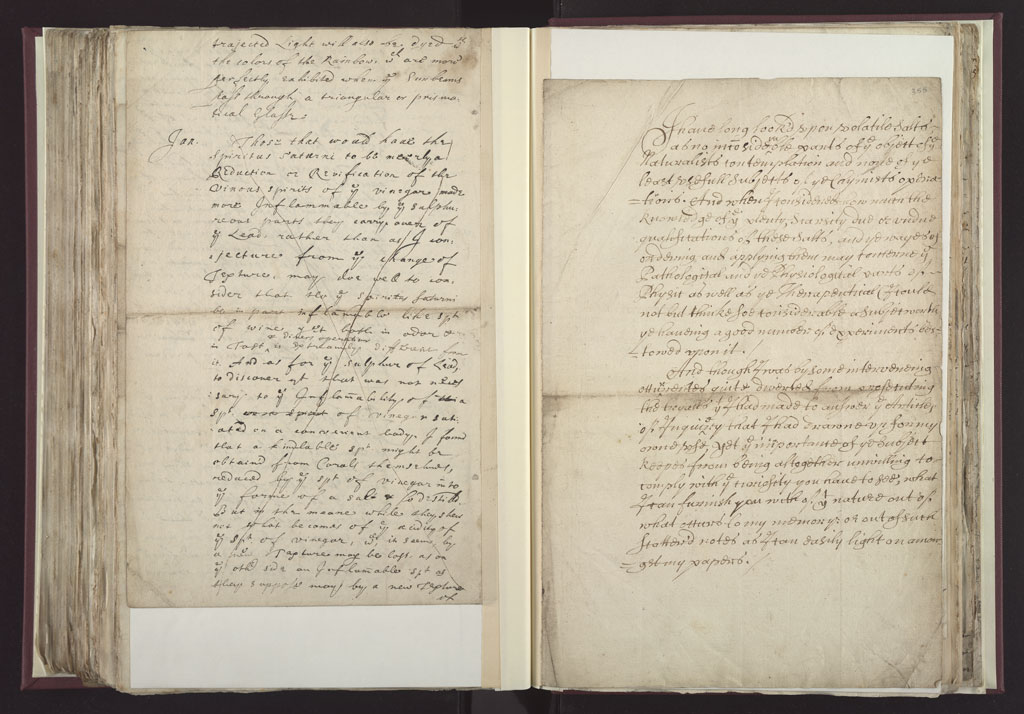 trajected Light will also be dyed wth
the colors of the Rainbow, wch are more
perfectly exhibited when ye Sunbeams
pass through a triangular or prisma-
tical Glasse.
Jan. Those that would have the
Spiritus Saturni to be meerly a
Reduction or Revification of the
Vinous spirits of ye vinegar made
more Inflammable by ye sulphu-
reous parts they carry over of
ye Lead, rather than as I con-
jecture from ye change of
Texture, may doe well to con-
sider that tho ye spiritus Saturni
be in part inflamable like spt
of wine, yet both in odor &
in Tast & divers operations is extreamly different from
it. And as for ye sulphur of Lead,
to discover yt that was not neces
sary to ye Inflamability of this a
spt. of vinegar sati-
ated on a concurrent body, I found
that a kindlable spt might be
obtained from Coralls themselves,
reduced by ye spt of vinegar into
ye forme of a Salt & so distilld
But in the meane while they shew
not what becomes of ye acidity of
ye spt of vinegar, wch it seems by
a new Texture may be lost, as on
ye other side an Inflamable spt as
they suppose may by a new Texture
of
258
I have long look'd upon volatile Salts
as no inconsiderable parts of ye object of ye
Naturalists contemplation and none of ye
least usefull subjects of ye Chymists opera
=tions. And when I consider how much the
knowledge of ye plenty, scarsity due or undue
qualifications of these Salts, and ye wayes of
ordering and applying them may concerne ye
Pathological and ye Physiological parts of
Physic as well as ye Therapeutical, I could
not but thinke soe considerable a subject worth
ye haveing a good number of experiments bes-
towed upon it.
And though I was by some intervening
occurrences quite diverted from prosecuting
the tryalls yt I had made to answer ye Articles
of Inquiry that I had drawne up for my
owne use, yet ye importance of ye subject
keepes from being altogether unwilling to
comply with ye curiosity you have to see, what
I can furnish you with of yt nature out of
what occurs to my memory; or out of such
scatterd notes as I can easily light on amon
=gst my papers.